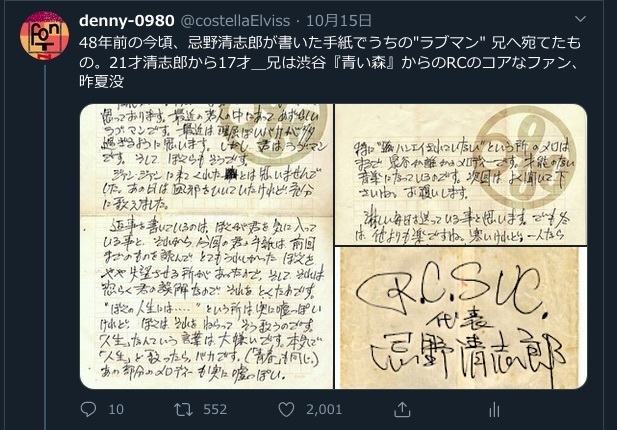 denny-0980 @costellaElviss・10月15日
48年前の今頃、忌野清志郎が書いた手紙でうちの"ラブマン" 兄へ宛てたも
の。21才清志郎から17才__兄は渋谷『青い森』からのRCのコアなファン、
昨夏没
思っております。最近の若人の中にあってめずらしい
ラブマンです。最近は
ように思います。しかし君はラブマン
です。そして ぼくらもそうです。
ジャンジャンに来てくれたとは思いませんで
した。あの日は風邪をひいていたけれど充分
に歌えました。
返事を書いているのは、ぼくが君を気に入って
いる事と、それから今回の君の手紙は前回
までのものを読んで とてもうれしかったぼくを
やや失望させる所があったので、そして それは
恐らく君の誤解なので、それをとくためです。
"ぼくの人生には‥‥" という所は実に嘘っぽい
けれど ぼくは それをねらって そう歌うのです。
「人生」なんていう言葉は大嫌いです。本気で
「人生」と歌ったら バカです。(「青春」も同じ。)
あの部分のメロディーも実に嘘っぽい。
特に
音楽になっているのです。次回は よく聞いて下
さいね。お願いします。
淋しい毎日を送っている事と思います。でも冬
は 他よりも楽ですね。寒いけれど。一人なら
R.C.SUC.
代表
忌野清志郎
fon
10
552
2,001